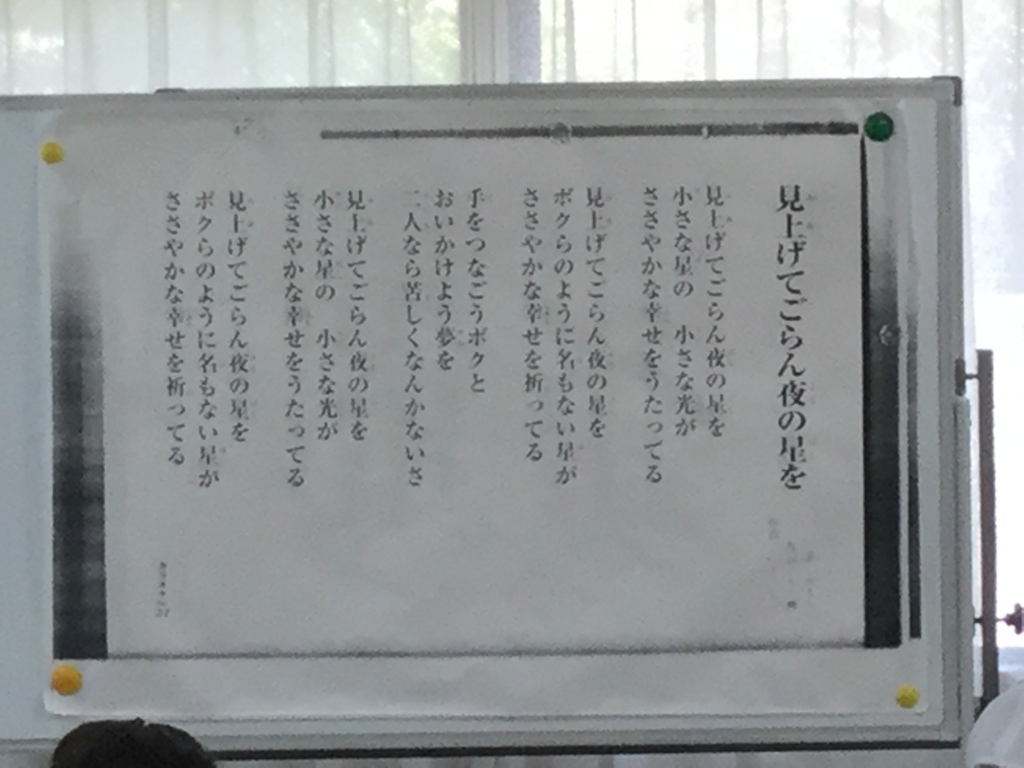 見上げてごらん夜の星を
見上げてごらん夜の星を
小さな星の　小さな光が
ささやかな幸せをうたってる
見上げてごらん夜の星を
ボクらのように名もない星が
ささやかな幸せを祈ってる
手をつなごうボクと
おいかけよう夢を
二人なら苦しくなんかないさ
見上げてごらん夜の星を
小さな星の　小さな光が
ささやかな幸せをうたってる
見上げてごらん夜の星を
ボクらのように名もない星が
ささやかな幸せを祈ってる